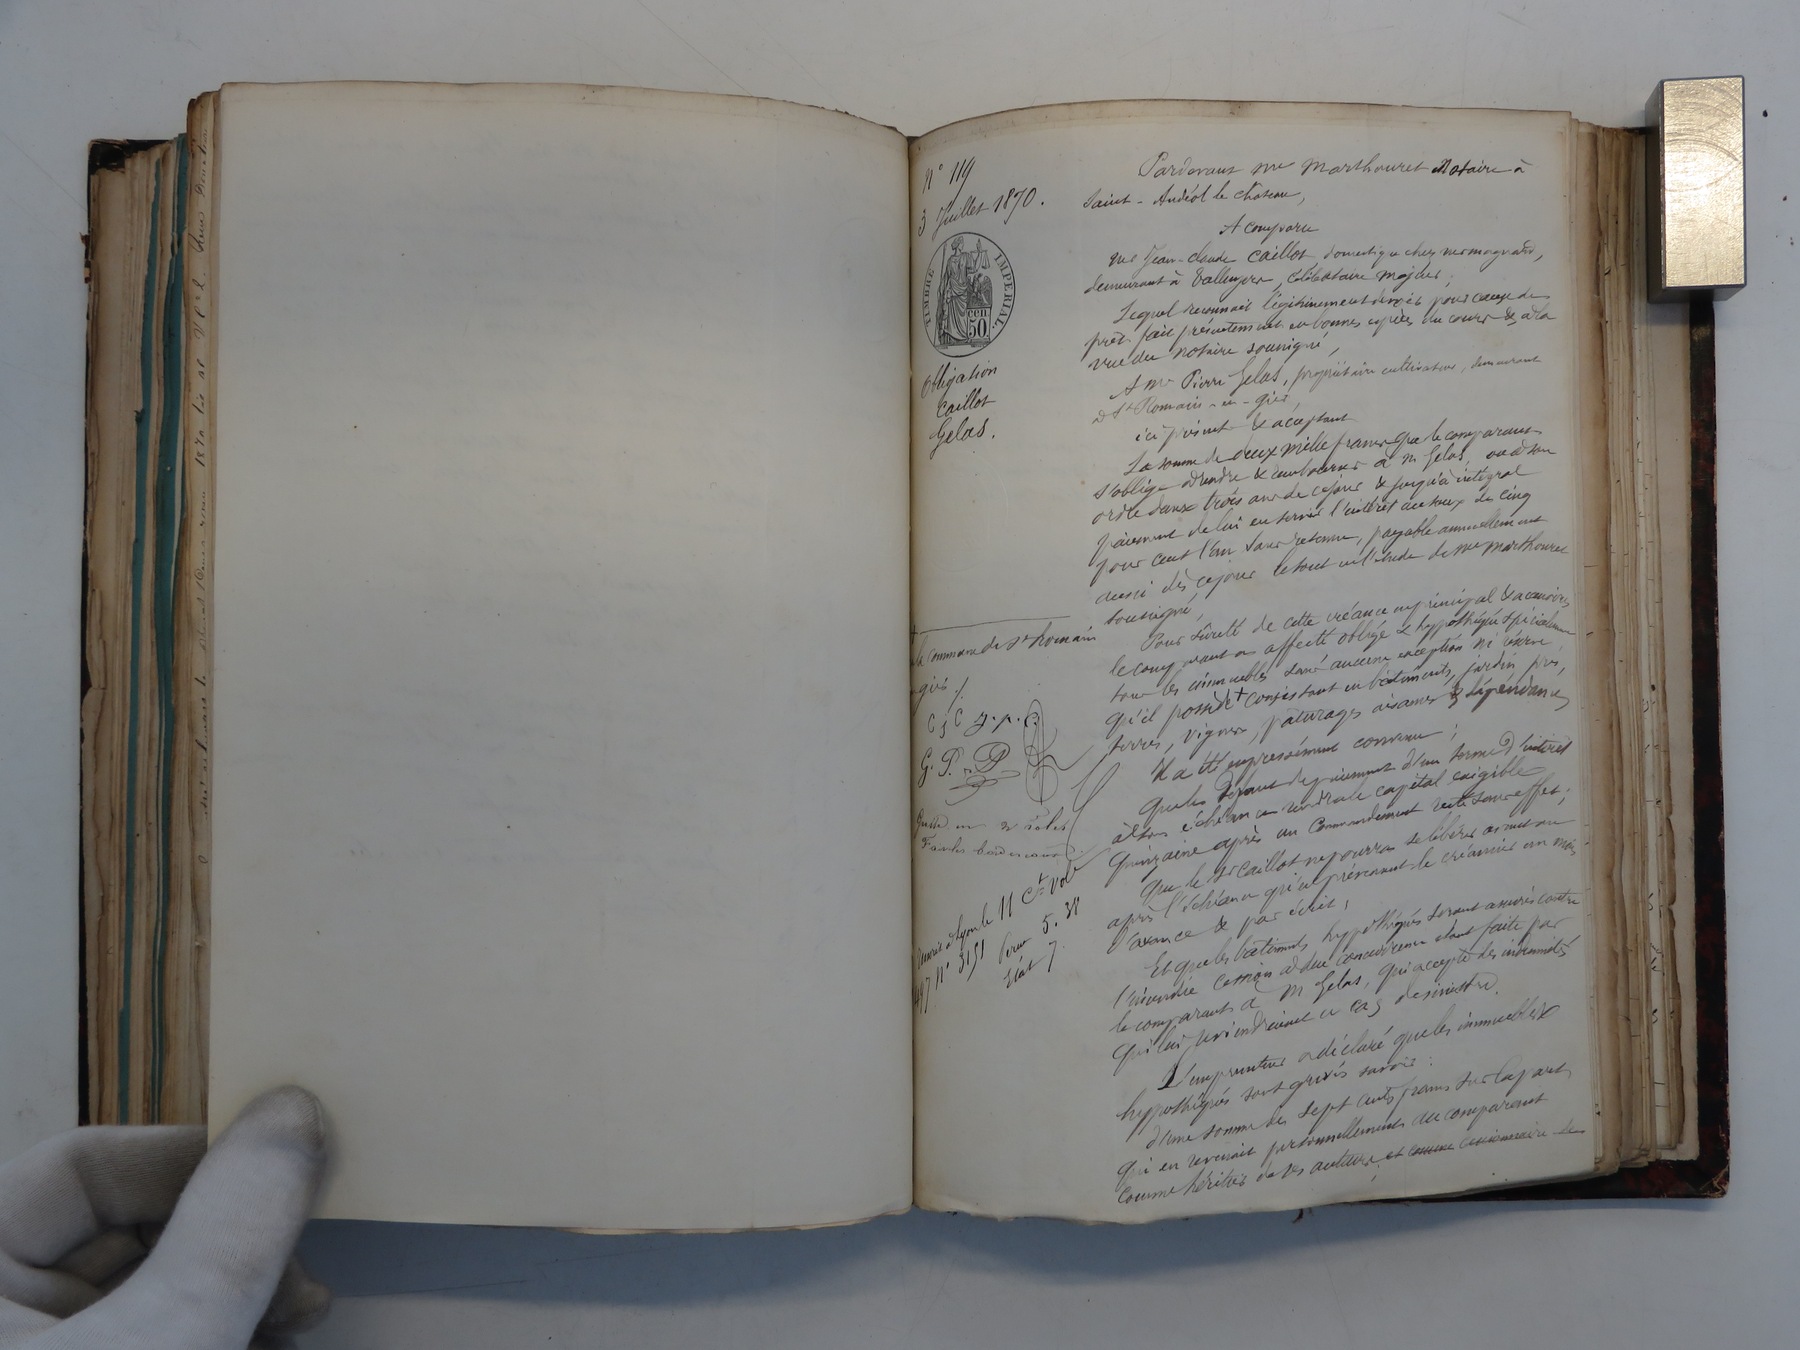 N° 119
3 Juillet 1870.
TIMBRE IMPERIAL
50 cen
Obligation
Caillot
Gelas.
la commune de St Romain
gier
C J C J. P. C
G. P. P
497 N° 3151
5. 38
Etat 7
Pardevant Me Marthouret Notaire à
Saint-Andéol le Château,
A comparu
Mr Jean-Claude Caillot, domestique chez
demeurant à célibataire majeur ;
Lequel reconnait légitimement devoir pour cause de
prêt fait présentement en bonnes espèces du cours & à la
vue du notaire soussigné,
A Mr Pierre Gelas, propriétaire cultivateur, demeurant
à St Romain-en-gier,
ici présent & acceptant
La somme de deux mille francs que le comparant
s'oblige à rendre & rembourser à M Gelas, ou à son
ordre dans trois ans de ce jour & jusqu'à intégral
paiement de lui en servir l'intérêt au taux de cinq
pour cent l'an sans retenue, payable annuellement
aussi dès ce jour le tout en l'étude de Me Marthouret
soussigné,
Pour sûreté de cette créance en principal & accessoires
le comparant a affecté obligé & hypothéqué spécialement
tous les immeubles sans aucune exception ni réserve
qu'il possède + consistant en bâtiments, jardin, prés,
terres, vignes, pâturages aisances & dépendances
Il a été expressément convenu ;
Que le défaut de paiement d'un terme d'intérêt
à son échéance rendra le capital exigible
quinzaine après un commandement resté sans effet ;
Que le Sr Caillot ne pourra se libérer avant ou
après l'échéance qu'en prévenant le créancier un mois
d'avance & par écrit ;
Et que les bâtiments hypothéqués seront assurés contre
l'incendie cession à due concurrence étant faite par
le comparant à M Gelas, qui accepte des indemnités
qui lui reviendraient en cas de sinistre.
L'emprunteur a déclaré que les immeubles
hypothéqués sont grevés savoir :
d'une somme de sept cents francs sur la part
qui en revenait personnellement au comparant
comme héritier de ses auteurs, et comme cessionnaire de